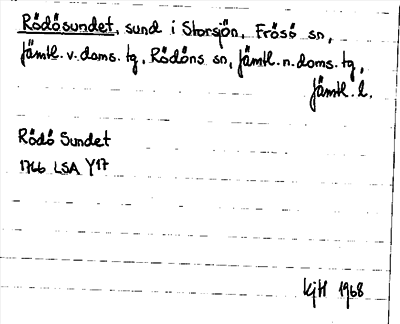 Rödösundet, sund i Storsjön, Frösö sn,
Jämtl. v. doms. tg, Rödöns sn, Jämtl. n. doms. tg,
Jämtl. l.
Rödö Sundet
1766 LSA Y17
KjH 1968